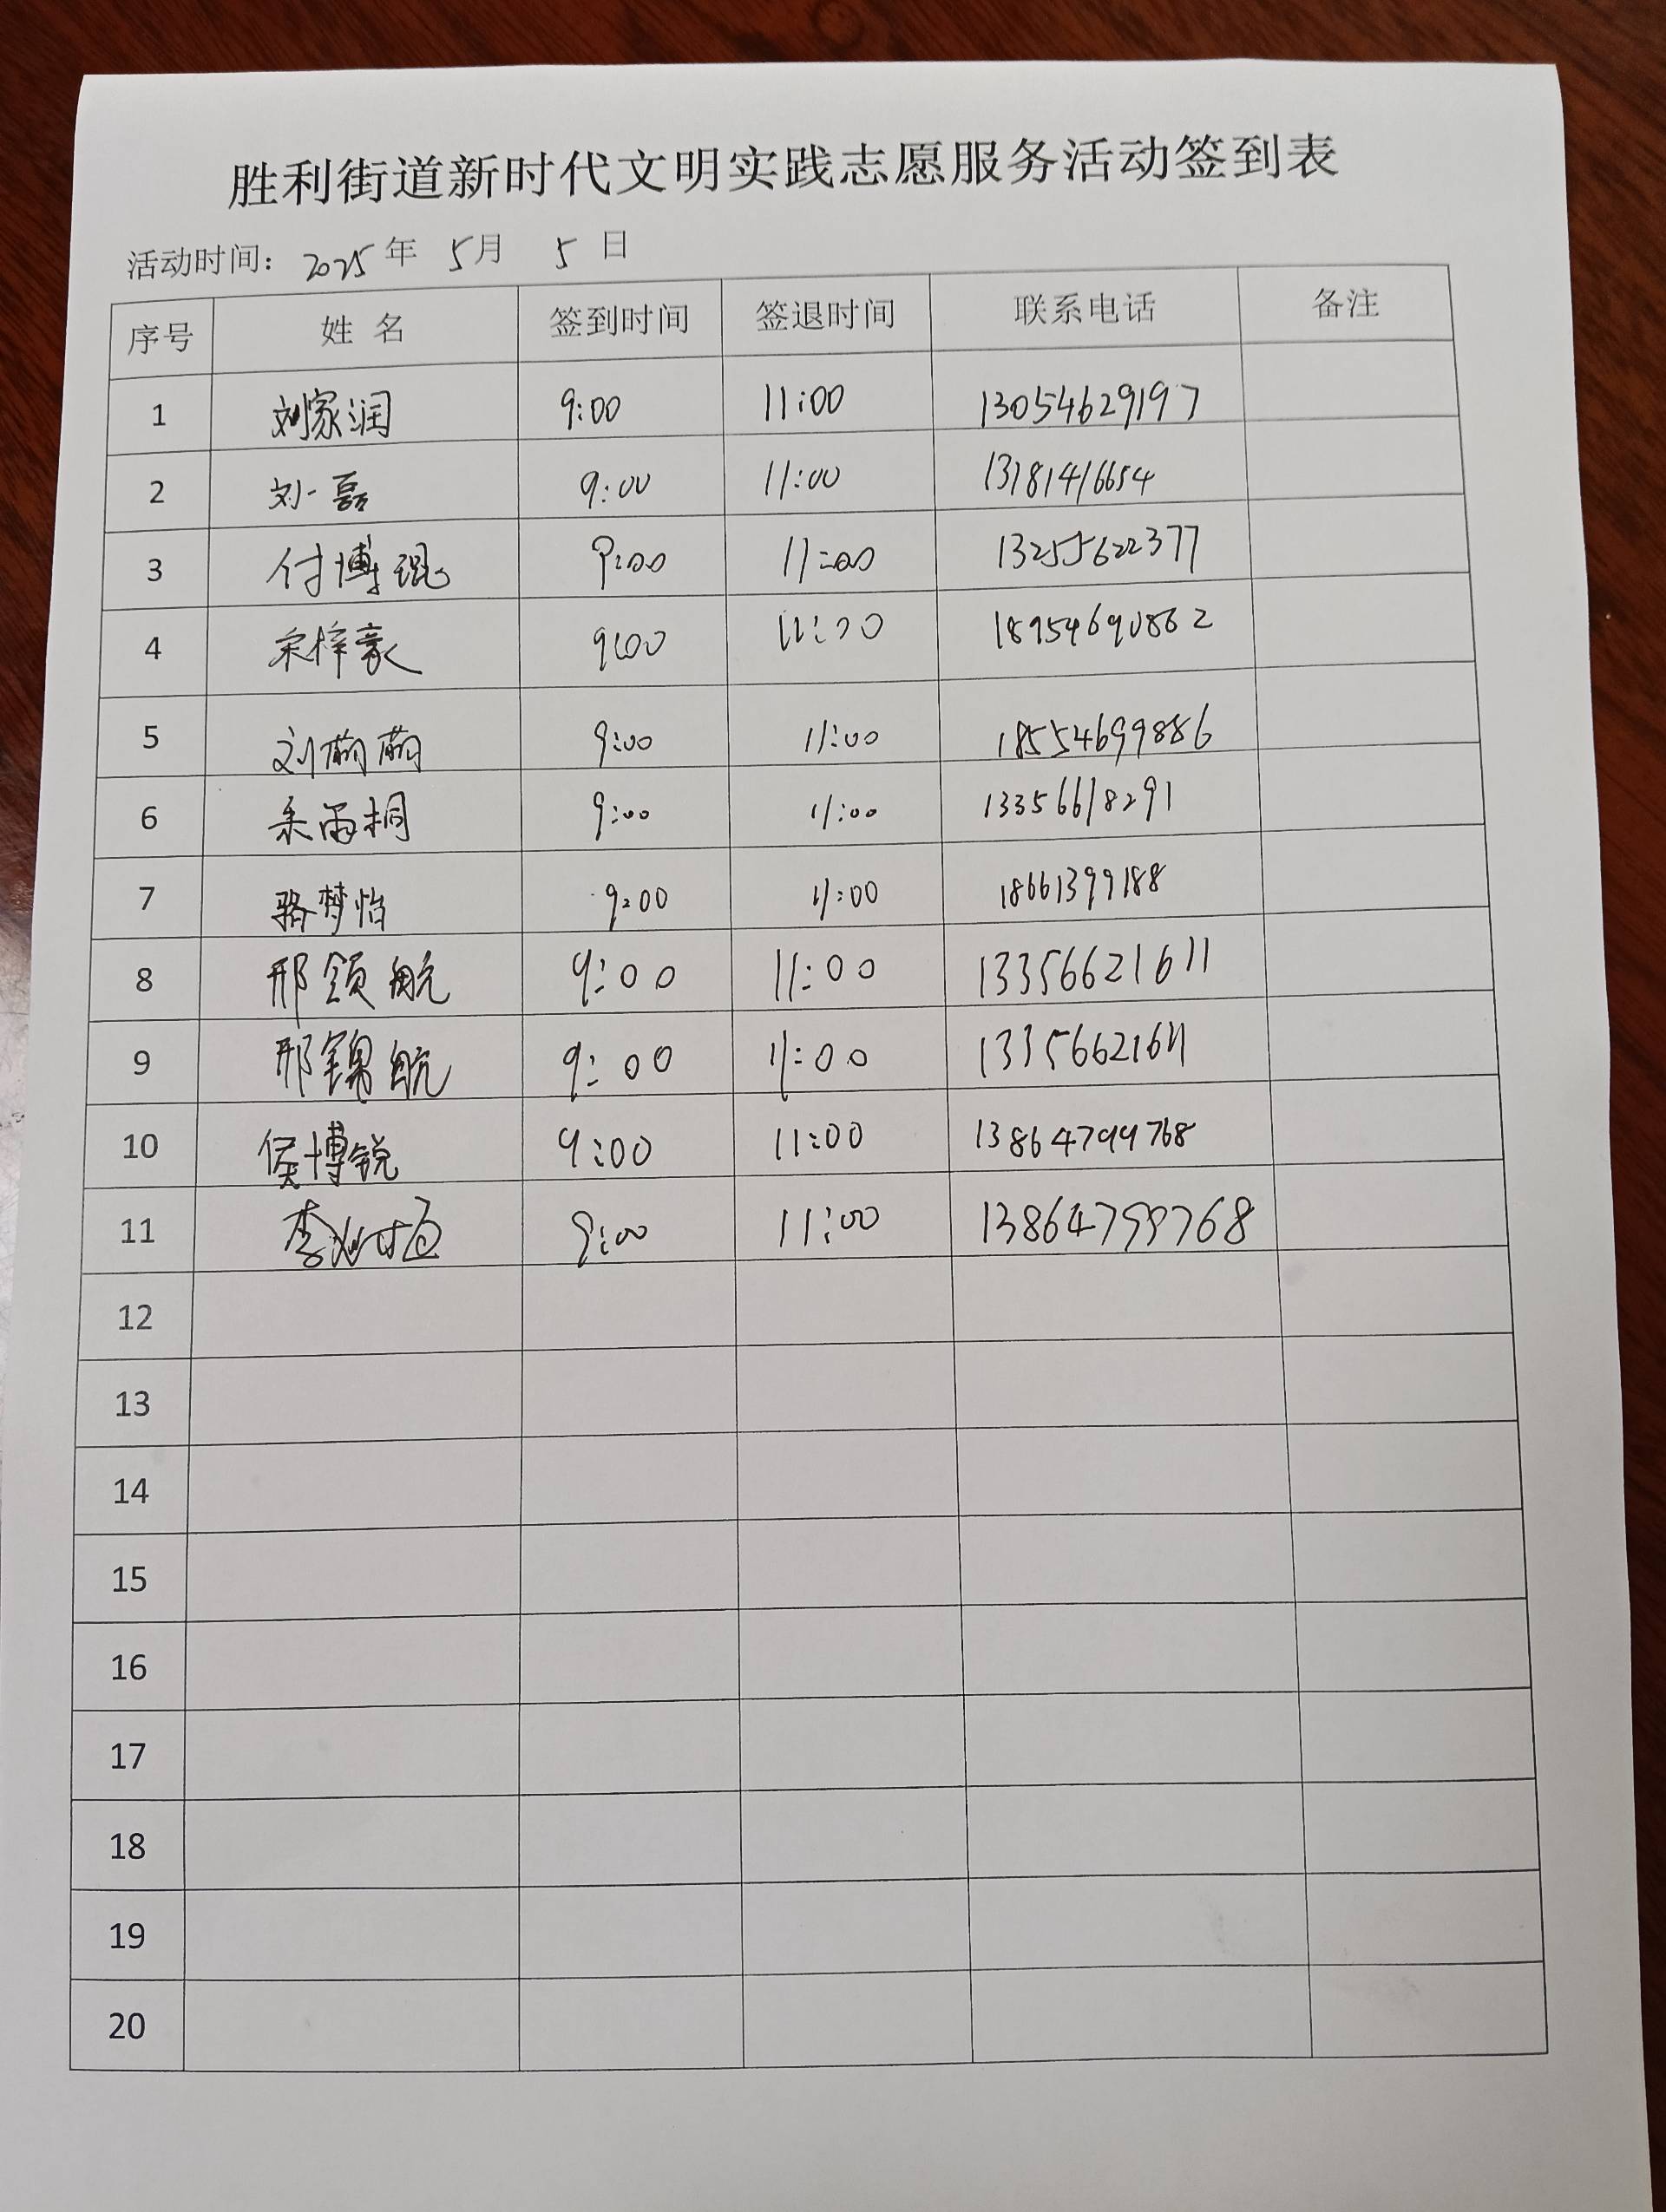 胜利街道新时代文明实践志愿服务活动签到表
活动时间: 2025 年 5月 5 日
序号 姓 名 签到时间 签退时间 联系电话 备注
1 刘家润 9:00 11:00 13054629197
2 刘一磊 9:00 11:00 13181416654
3 付博琨 9:00 11:00 13255622377
4 宋梓豪 9:00 11:00 18954690862
5 刘萌萌 9:00 11:00 18554699886
6 雨桐 9:00 11:00 13356618291
7 骆梦怡 9:00 11:00 18661399188
8 邢领航 9:00 11:00 13356621611
9 邢锦航 9:00 11:00 13356621611
10 侯博锐 9:00 11:00 13864799768
11 李 9:00 11:00 13864799768
12
13
14
15
16
17
18
19
20